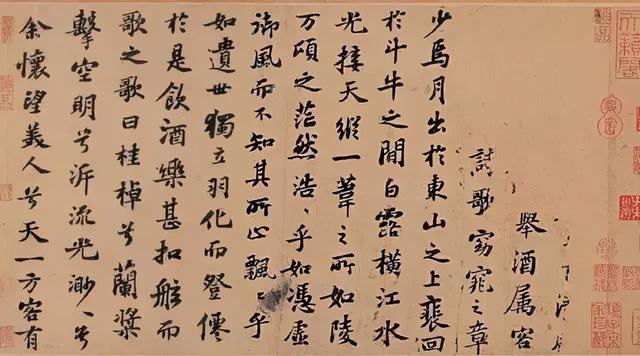 舉酒属客
詩歌窈窕之章
少焉月出於東山之上裵回
於斗牛之間白露橫江水
光接天縱一葦之所如陵
万頃之茫然浩〻乎如憑虛
御風而不知其所止飄〻乎
如遺世獨立羽化而登僊
於是飲酒樂甚扣舷而
歌之歌曰桂棹兮蘭槳
擊空明兮泝流光渺〻兮
余懷望美人兮天一方客有